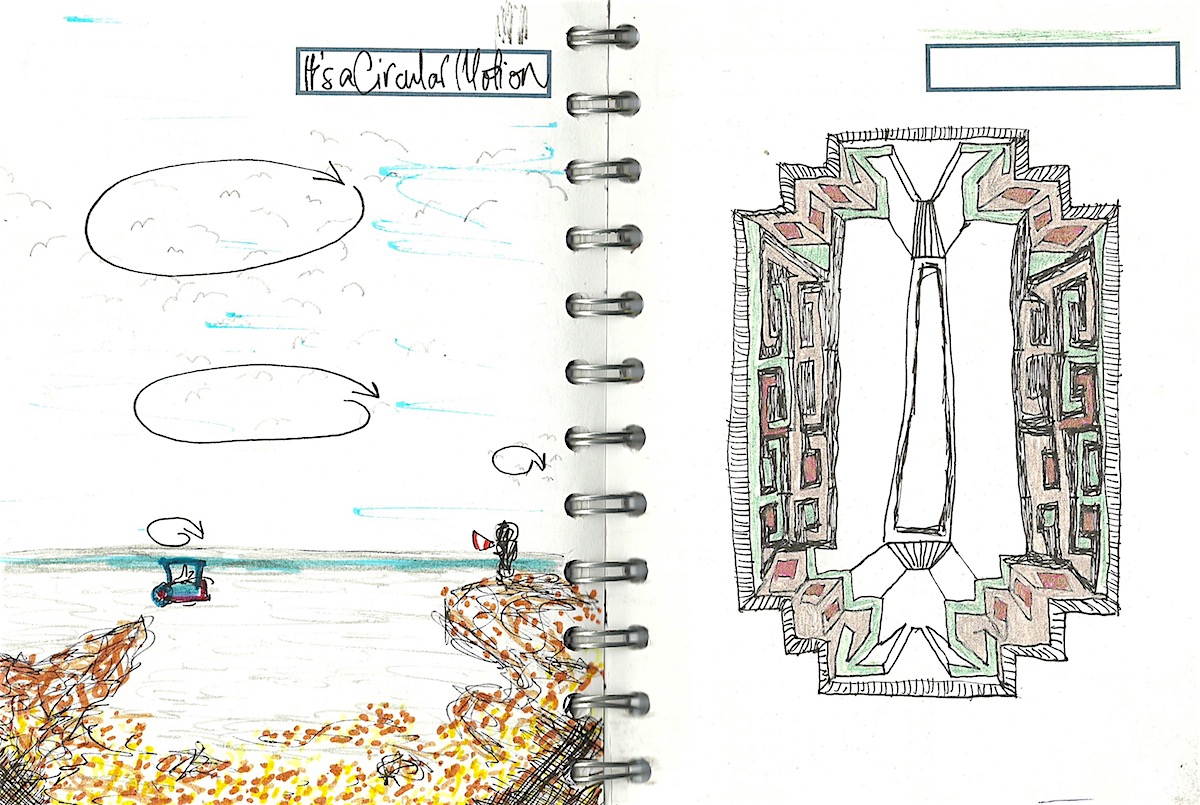 It's a Circular Motion